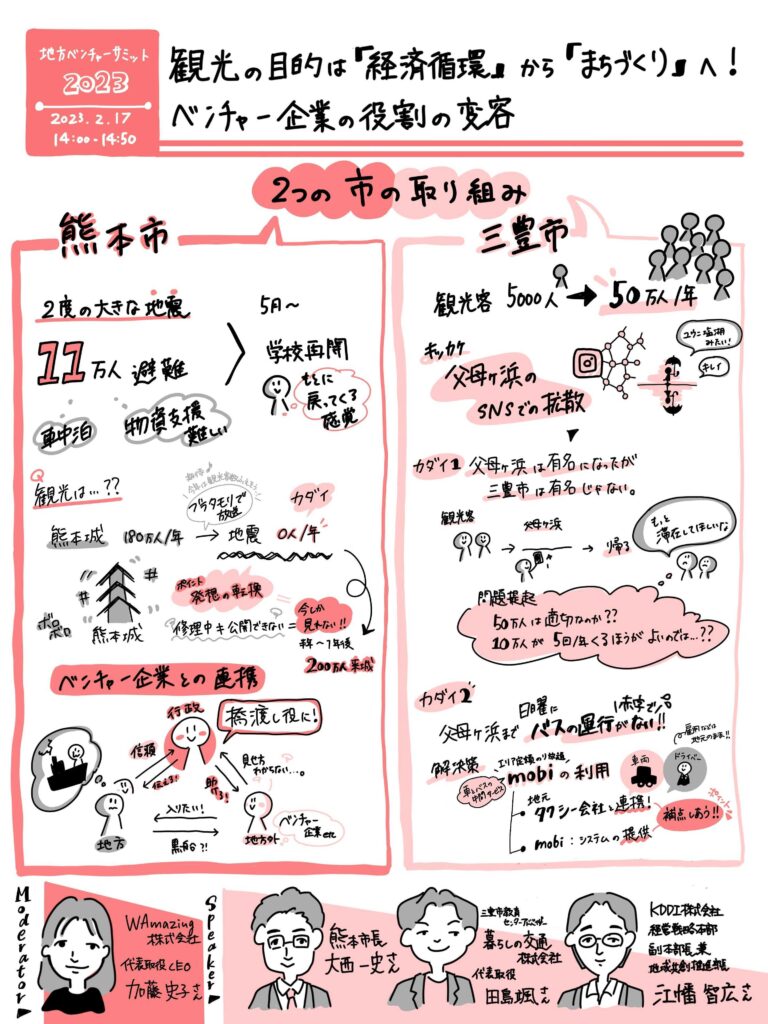 地方ベンチャーサミット
2023
2023.2.17
14:00-14:50
観光の目的は『経済循環』から『まちづくり』へ!
ベンチャー企業の役割の変容
2つの市の取り組み
熊本市
2度の大きな地震
11万人 避難
車中泊
物資支援
難しい
5月~
学校再開
もとに
戻ってくる
感覚
Q
観光は…??
ブラタモリで
放送
カダイ
熊本城 180万人/年 → 地震 0人/年
ボロ
ボロ
熊本城
ポイント
発想の転換
修理中キ公開できない =
今しか
見れない!!
200万人来城
ベンチャー企業との連携
行政
橋渡し役に!
信頼
伝える!
助ける!
見せ方
わからない…。
地方
入りたい!
黒船?!
地方外
ベンチャー
企業etc
三豊市
観光客 5000人 → 50万人/年
キッカケ
父母ヶ浜の
SNSでの拡散
ユウニ塩湖
みたい!
キレイ
カダイ1 父母ヶ浜は有名になったが
三豊市は有名じゃない。
観光客
父母ヶ浜
帰る
もっと
滞在してほしいな
問題提起
50万人は適切なのか??
10万人が5回/年くるほうがよいのでは…??
カダイ2
日曜に
赤字で
父母ヶ浜まで バスの運行がない!!
解決策
エリア定額のり放題
mobiの利用
車とバスの
中間サービス
車両
ドライバー
雇用などは
地元のまま!!
地元
・タクシー会社と連携!
・mobi:システムの提供
ポイント
補点しあう!!
Moderator
WAmazing
株式会社
代表取役CEO
加藤 史子さん
Speaker
熊本市長
大西一史さん
三豊市教育
センターアドバイザー
暮らしの交通
株式会社
代表取役
田島颯さん
KDDI株式会社
経営戦略本部
副本部長 兼
地域共創推進部長
江幡 智広さん